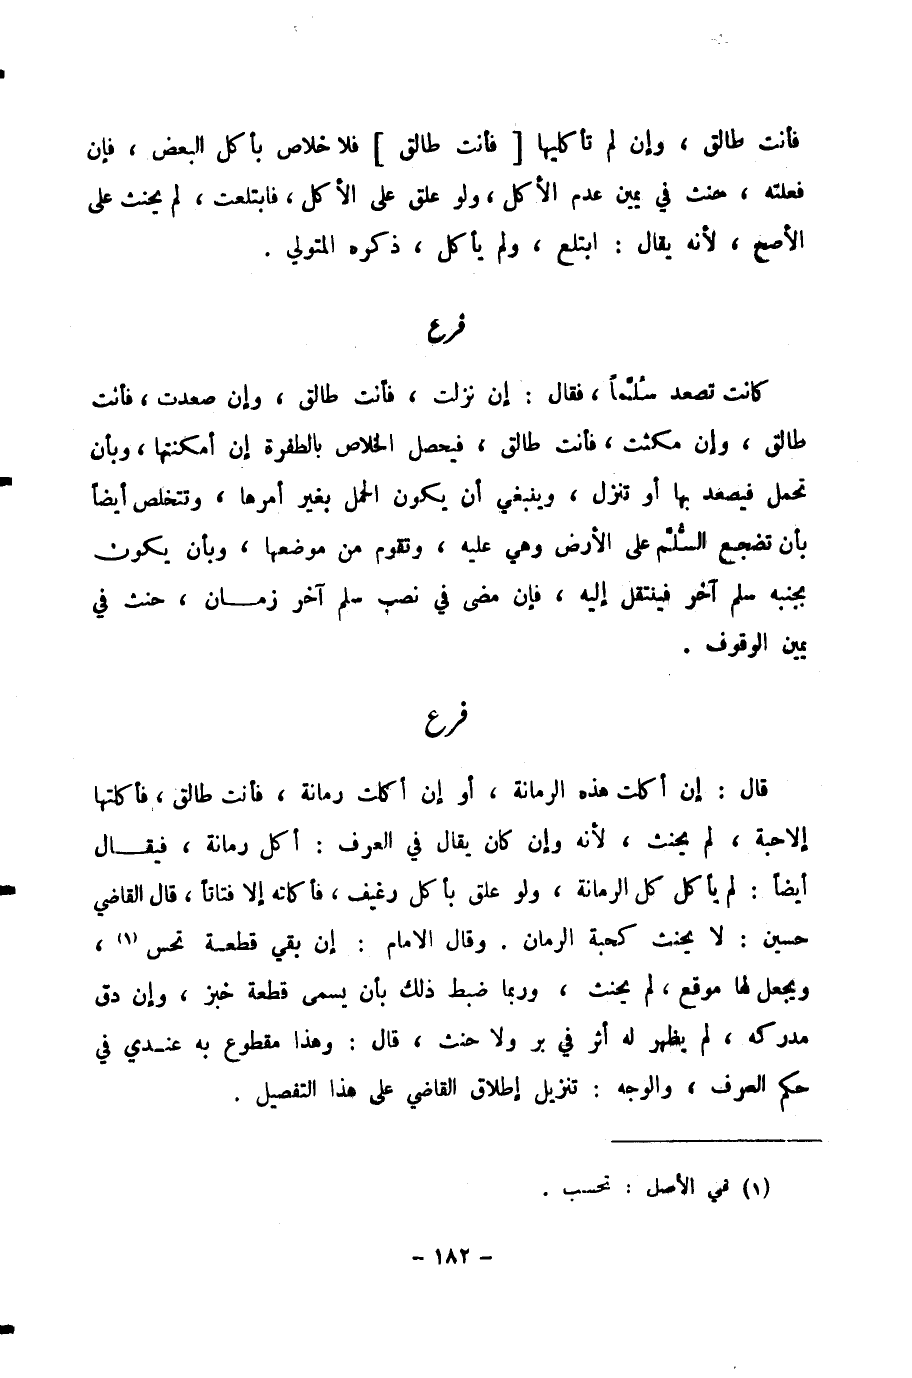 فأنت طالق ، وإن لم تأكليها [ فأنت طالق ] فلا خلاص بأكل البعض ، فإن
فعلته ، حنث في يمين عدم الأكل ، ولو علق على الأكل ، فابتلعت ، لم يحنث على
الأصح ، لأنه يقال : ابتلع ، ولم يأكل ، ذكره المتولي .
فرع
كانت تصعد سُلَّماً ، فقال : إن نزلت ، فأنت طالق ، وإن صعدت ، فأنت
طالق ، وإن مكثت ، فأنت طالق ، فيحصل الخلاص بالطفرة إن أمكنتها ، وبأن
تحمل فيصعد بها أو تنزل ، وينبغي أن يكون الحمل بغير أمرها ، وتتخلص أيضاً
بأن تضجع السُّلَّم على الأرض وهي عليه ، وتقوم من موضعها ، وبأن يكون
بجنبه سلم آخر فينتقل إليه ، فإن مضى في نصب سلم آخر زمـــان ، حنث في
يمين الوقوف .
فرع
قال : إن أكلت هذه الرمانة ، أو إن أكلت رمانة ، فأنت طالق ، فأكلتها
إلاحبة ، لم يحنث ، لأنه وإن كان يقال في العرف : أكل رمانة ، فيقــال
أيضاً : لم يأكل كل الرمانة ، ولو علق بأكل رغيف ، فأكلته إلا فتاتاً ، قال القاضي
حسين : لا يحنث كحبة الرمان . وقال الامام : إن بقي قطعـة تحس (١) ،
ويجعل لها موقع ، لم يحنث ، وربما ضبط ذلك بأن يسمى قطعة خبز ، وإن دق
مدركه ، لم يظهر له أثر في بر ولا حنث ، قال : وهذا مقطوع به عنـدي في
حكم العرف ، والوجه : تنزيل إطلاق القاضي على هذا التفصيل .
(١) في الأصل : تحسب .
- ١٨٢ -